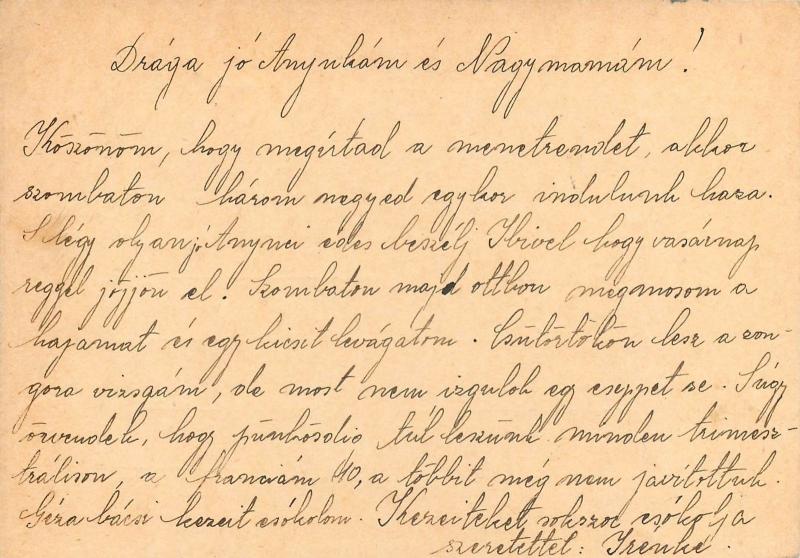 Drága jó Anyukám és Nagymamám!
Köszönöm, hogy megírtad a menetrendet, akkor
szombaton három negyed egykor indulunk haza.
S légy olyan jó Anyuci édes beszélj Ibivel hogy vasárnap
reggel jöjjön el. Szombaton majd otthon megmosom a
hajamat és egy kicsit levágatom. Csütörtökön lesz a zon-
gora vizsgám, de most nem izgulok egy cseppet se. S úgy
örvendek, hogy pünkösdig túl leszünk minden trimesz-
trálison, a franciám 10, a többit még nem javították.
Géza bácsi kezeit csókolom. Kezeiteket sokszor csókolja
szeretettel: Irénke.